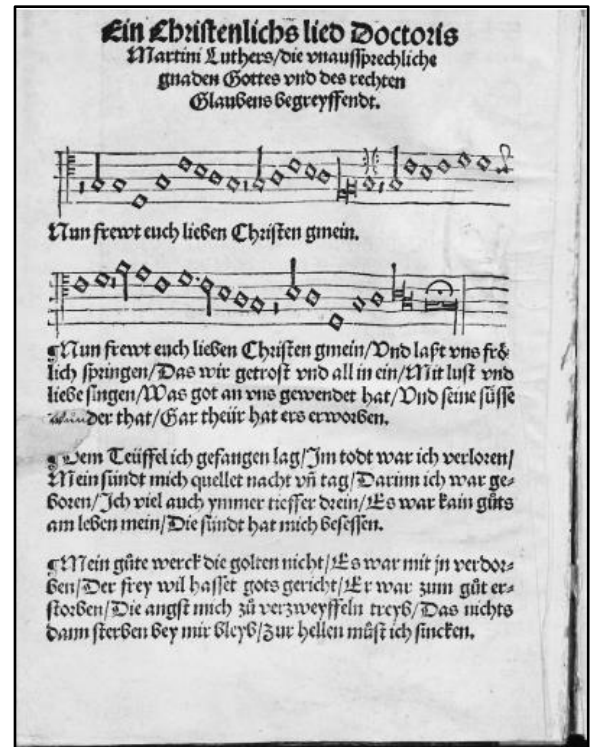 Ein Christenlichs lied Doctoris
Martini Luthers/die vnaussprechliche
gnaden Gottes vnd des rechten
Glaubens begreyffendt.
Nun frewt euch lieben Christen gmein.
¶Nun frewt euch lieben Christen gmein/Vnd laßt vns frö-
lich springen/Das wir getrost vnd all in ein/Mit lust vnd
liebe singen/Was got an vns gewendet hat/Vnd seine süsse
wunder that/Gar theür hat ers erworben.
¶Dem Teüffel ich gefangen lag/Jm todt war ich verloren/
Mein sündt mich quellet nacht vñ tag/Darinn ich war ge-
boren/Jch viel auch ymmer tieffer drein/Es war kain gůts
am leben mein/Die sündt hat mich besessen.
¶Mein gůte werck die golten nicht/Es war mit jn verdor-
ben/Der frey wil hasset gots gericht/Er war zum gůt er-
storben/Die angst mich zů verzweyffeln treyb/Das nichts
dann sterben bey mir bleyb/Zur hellen můst ich sincken.